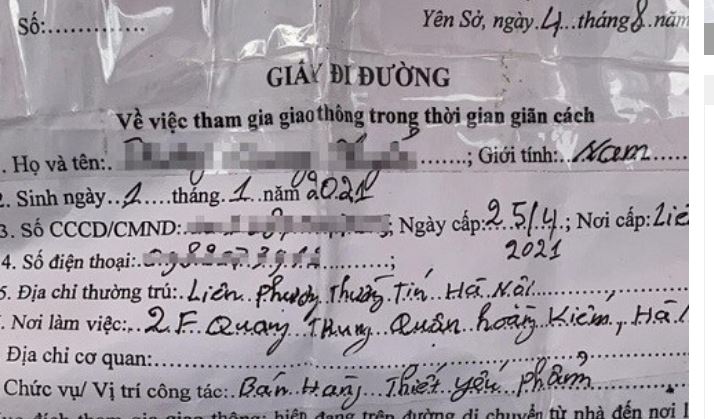 Số:............... Yên Sở, ngày 4 tháng 8 năm
GIẤY ĐI ĐƯỜNG
Về việc tham gia giao thông trong thời gian giãn cách
. Họ và tên: ........; Giới tính: Nam
2. Sinh ngày 1 tháng 1 năm 2021
3. Số CCCD/CMND: ; Ngày cấp: 25/4.; Nơi cấp: Liê
2021
4. Số điện thoại: ;
5. Địa chỉ thường trú: Liên Phương Thường Tín Hà Nội
. Nơi làm việc: 2F Quang Trung Quận hoàn Kiếm, Hà
Địa chỉ cơ quan:
Chức vụ/ Vị trí công tác: Bán Hàng Thiết yếu phẩm
đích tham gia giao thông: hiện đang trên đường di chuyển từ nhà đến nơi l